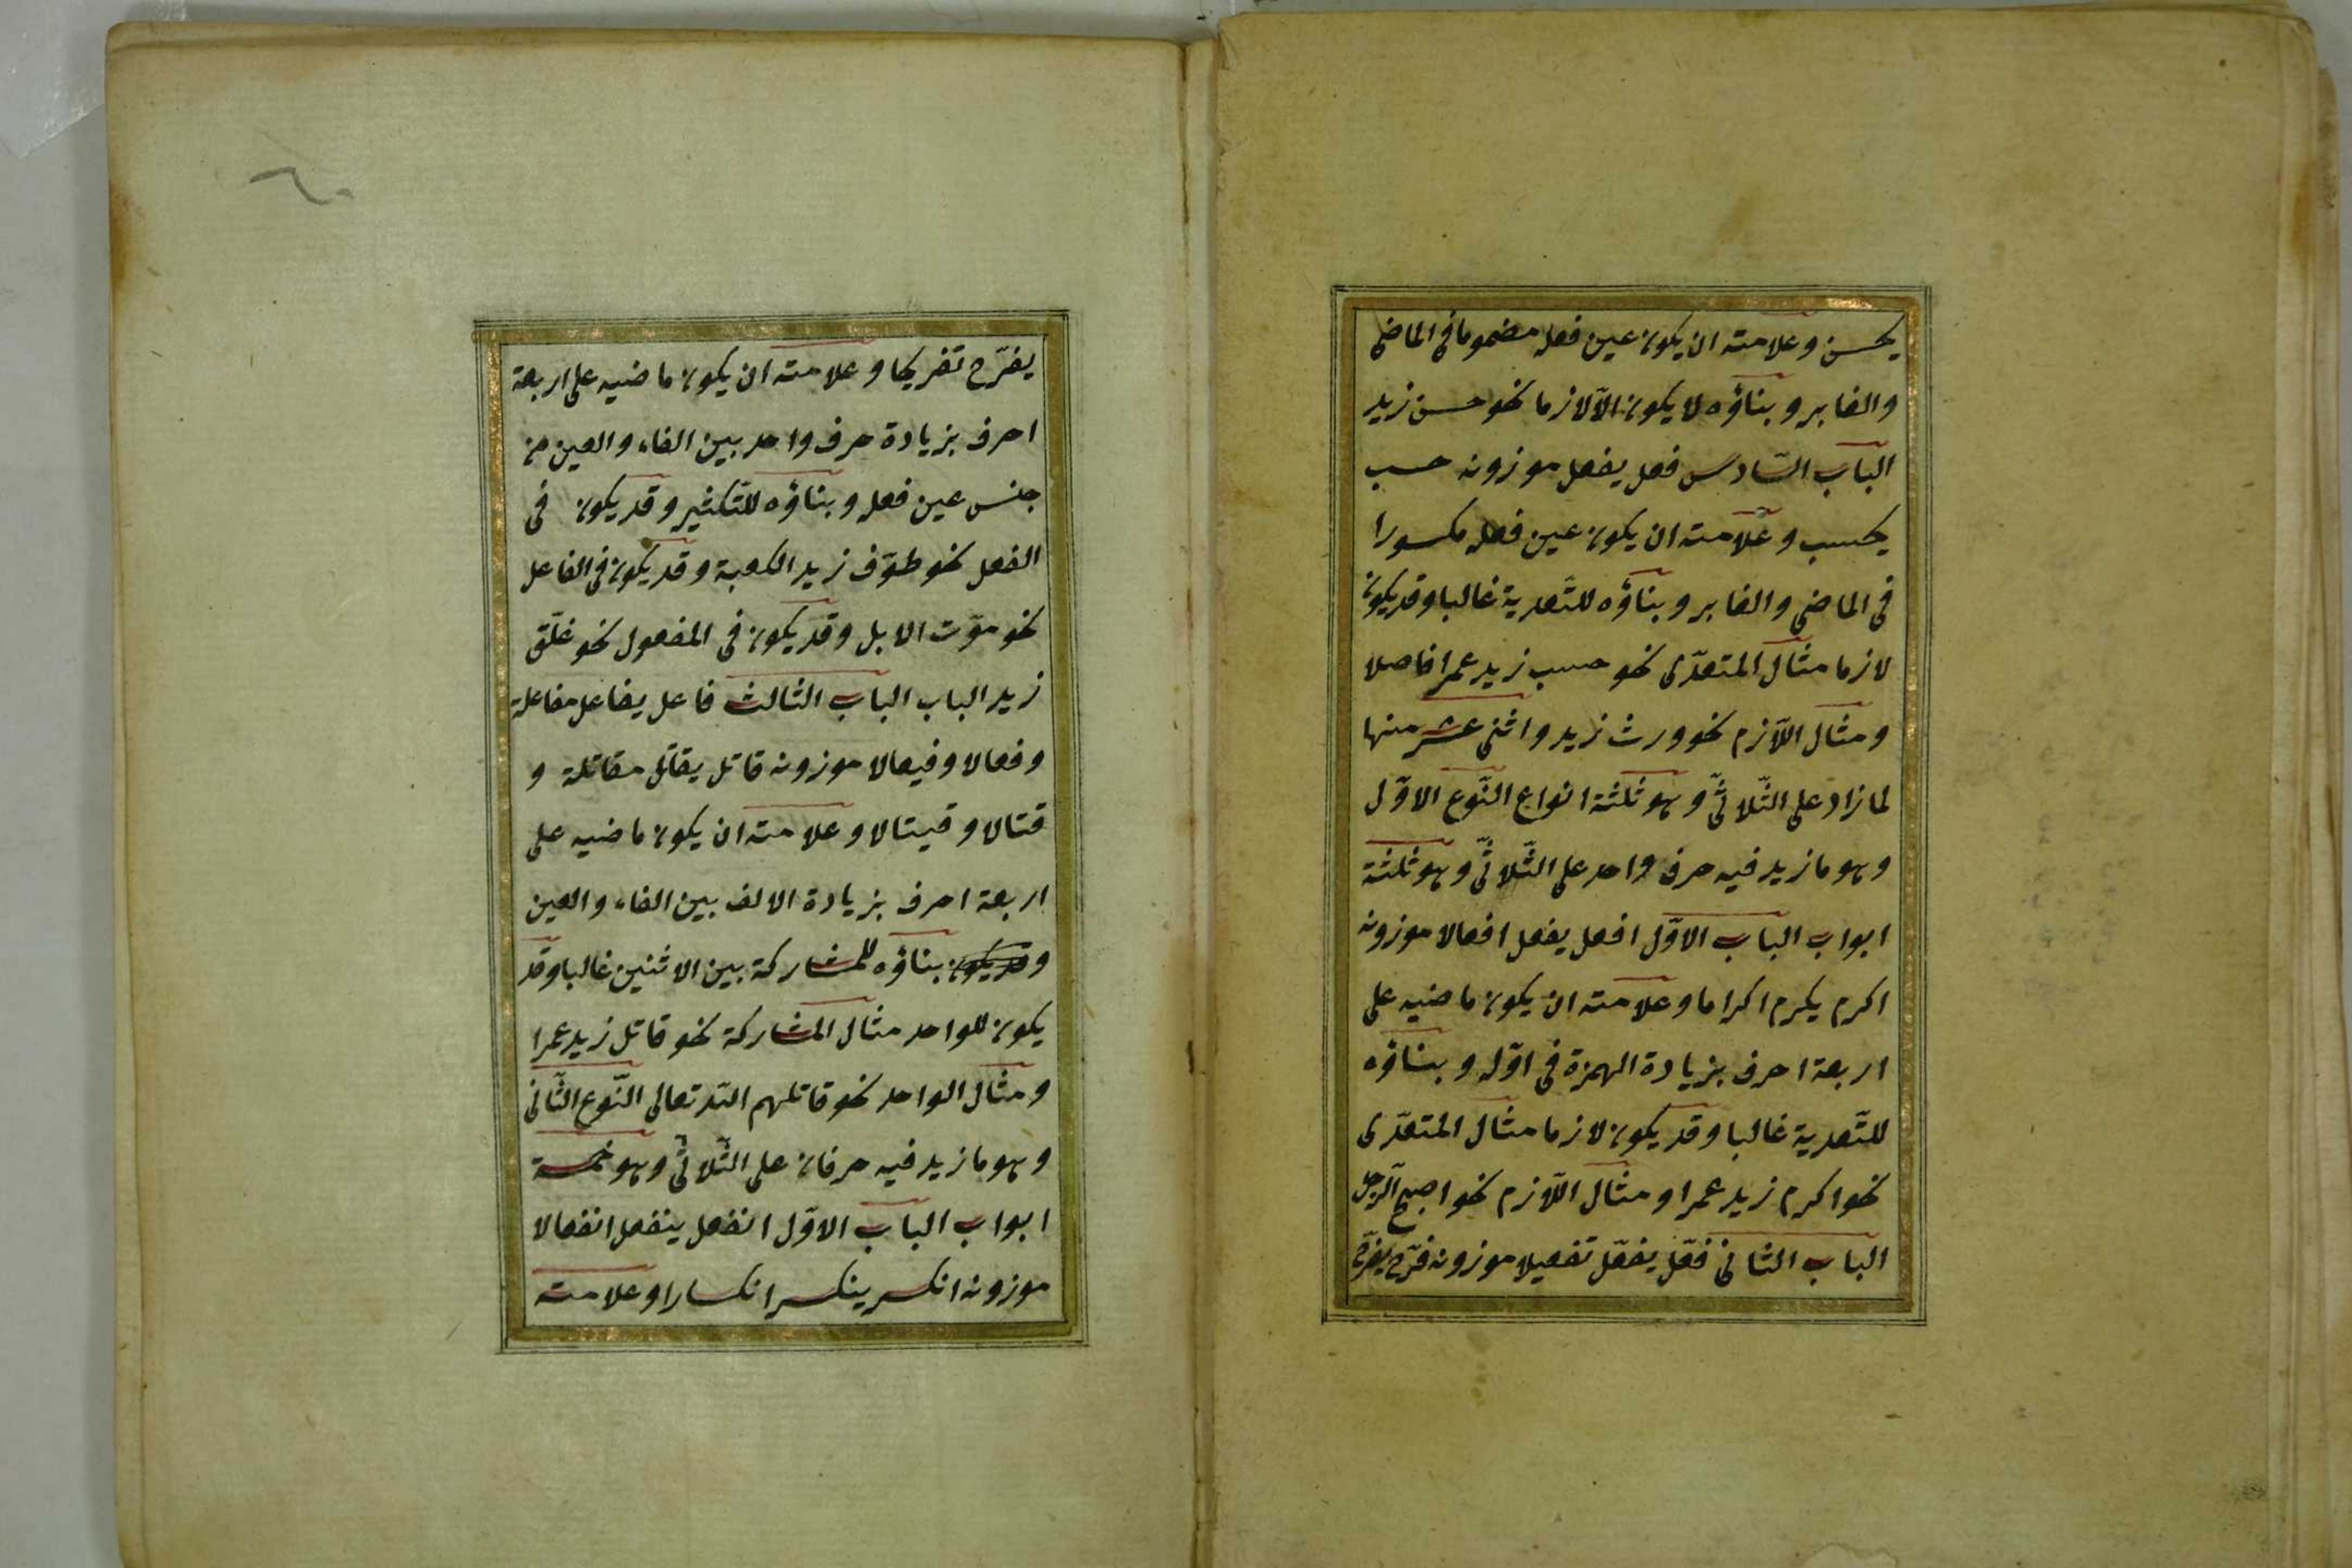 يحسن وعلامته ان يكون عين فعله مضموما فى الماضى
والغابر وبناؤه لا يكون الّا لازما نحو حسن زيد
الباب السّادس فعل يفعل موزونه حسب
يحسب وعلامته ان يكون عين فعله مكسورا
فى الماضى والغابر وبناؤه للتّعدية غالبا وقد يكون
لازما مثال المتعدّى نحو حسب زيد عمرا فاضلا
ومثال اللّازم نحو ورث زيد واثنى عشر منها
لما زاد على الثّلاثىّ وهو ثلثة انواع النّوع الاوّل
وهو ما زيد فيه حرف واحد على الثّلاثىّ وهو ثلثة
ابواب الباب الاوّل افعل يفعل افعالا موزونه
اكرم يكرم اكراما وعلامته ان يكون ماضيه على
اربعة احرف بزيادة الهمزة فى اوّله وبناؤه
للتّعدية غالبا وقد يكون لازما مثال المتعدّى
نحو اكرم زيد عمرا ومثال اللّازم نحو اصبح الرّجل
الباب الثانى فعّل يفعّل تفعيلا موزونه فرّح يفرّح
٦٠
يفرّح تفريحا وعلامته ان يكون ماضيه على اربعة
احرف بزيادة حرف واحد بين الفاء والعين من
جنس عين فعله وبناؤه للتّكثير وقد يكون فى
الفعل نحو طوّف زيد الكعبة وقد يكون فى الفاعل
نحو موّت الابل وقد يكون فى المفعول نحو غلّق
زيد الباب الباب الثالث فاعل يفاعل مفاعلة
وفعالا وفيعالا موزونه قاتل يقاتل مقاتلة و
قتالا وقيتالا وعلامته ان يكون ماضيه على
اربعة احرف بزيادة الالف بين الفاء والعين
وقد يكون بناؤه للمشاركة بين الاثنين غالبا وقد
يكون للواحد مثال المشاركة نحو قاتل زيد عمرا
ومثال الواحد نحو قاتلهم اللّه تعالى النّوع الثّانى
وهو ما زيد فيه حرفان على الثّلاثىّ وهو خمسة
ابواب الباب الاوّل انفعل ينفعل انفعالا
موزونه انكسر ينكسر انكسارا وعلامته